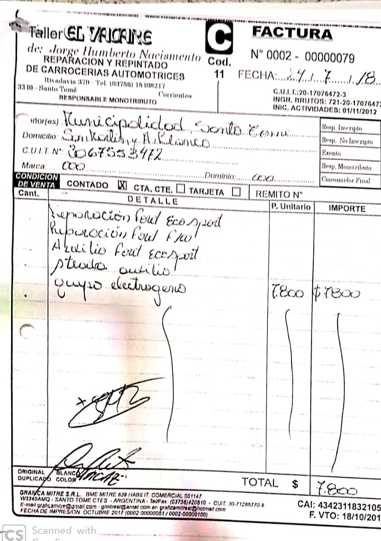 Taller EL VALCANE
de: Jorge Humberto Nacimiento
REPARACION Y REPINTADO
DE CARROCERIAS AUTOMOTRICES
Rivadavia 370 - Tel.
3340 - Santo Tomé Corrientes
RESPONSABLE MONOTRIBUTO
C
Cod.
11
FACTURA
N° 0002 - 00000079
FECHA: 24 / 7 / 18
C.U.I.T.: 20-17076472-3
INGR. BRUTOS: 721-20-1707647
INIC. ACTIVIDADES: 01/11/2012
Señor(es) Municipalidad, Santo Tomé
Domicilio San Martin y
C.U.I.T. N°
Marca 000 Dominio 000
Resp. Inscripto
Resp. No Inscripto
Exento
Resp. Monotributo
Consumidor Final
CONDICION DE VENTA CONTADO X CTA. CTE. TARJETA REMITO N°
Cant. DETALLE P. Unitario IMPORTE
Reparación Ford Ecosport
Reparación Ford
Auxilio Ford Ecosport
auxilio
grupo electrogeno 7.800 $ 7.800
ORIGINAL BLANCO
DUPLICADO COLOR
TOTAL $ 7.800
GRAFICA MITRE S.R.L. BME MITRE 639 HABILIT. COMERCIAL 001147
SANTO TOME CTES - ARGENTINA
FECHA DE IMPRESION: OCTUBRE 2017
CAI: 4342311832105
F. VTO: 18/10/201
CS Scanned with